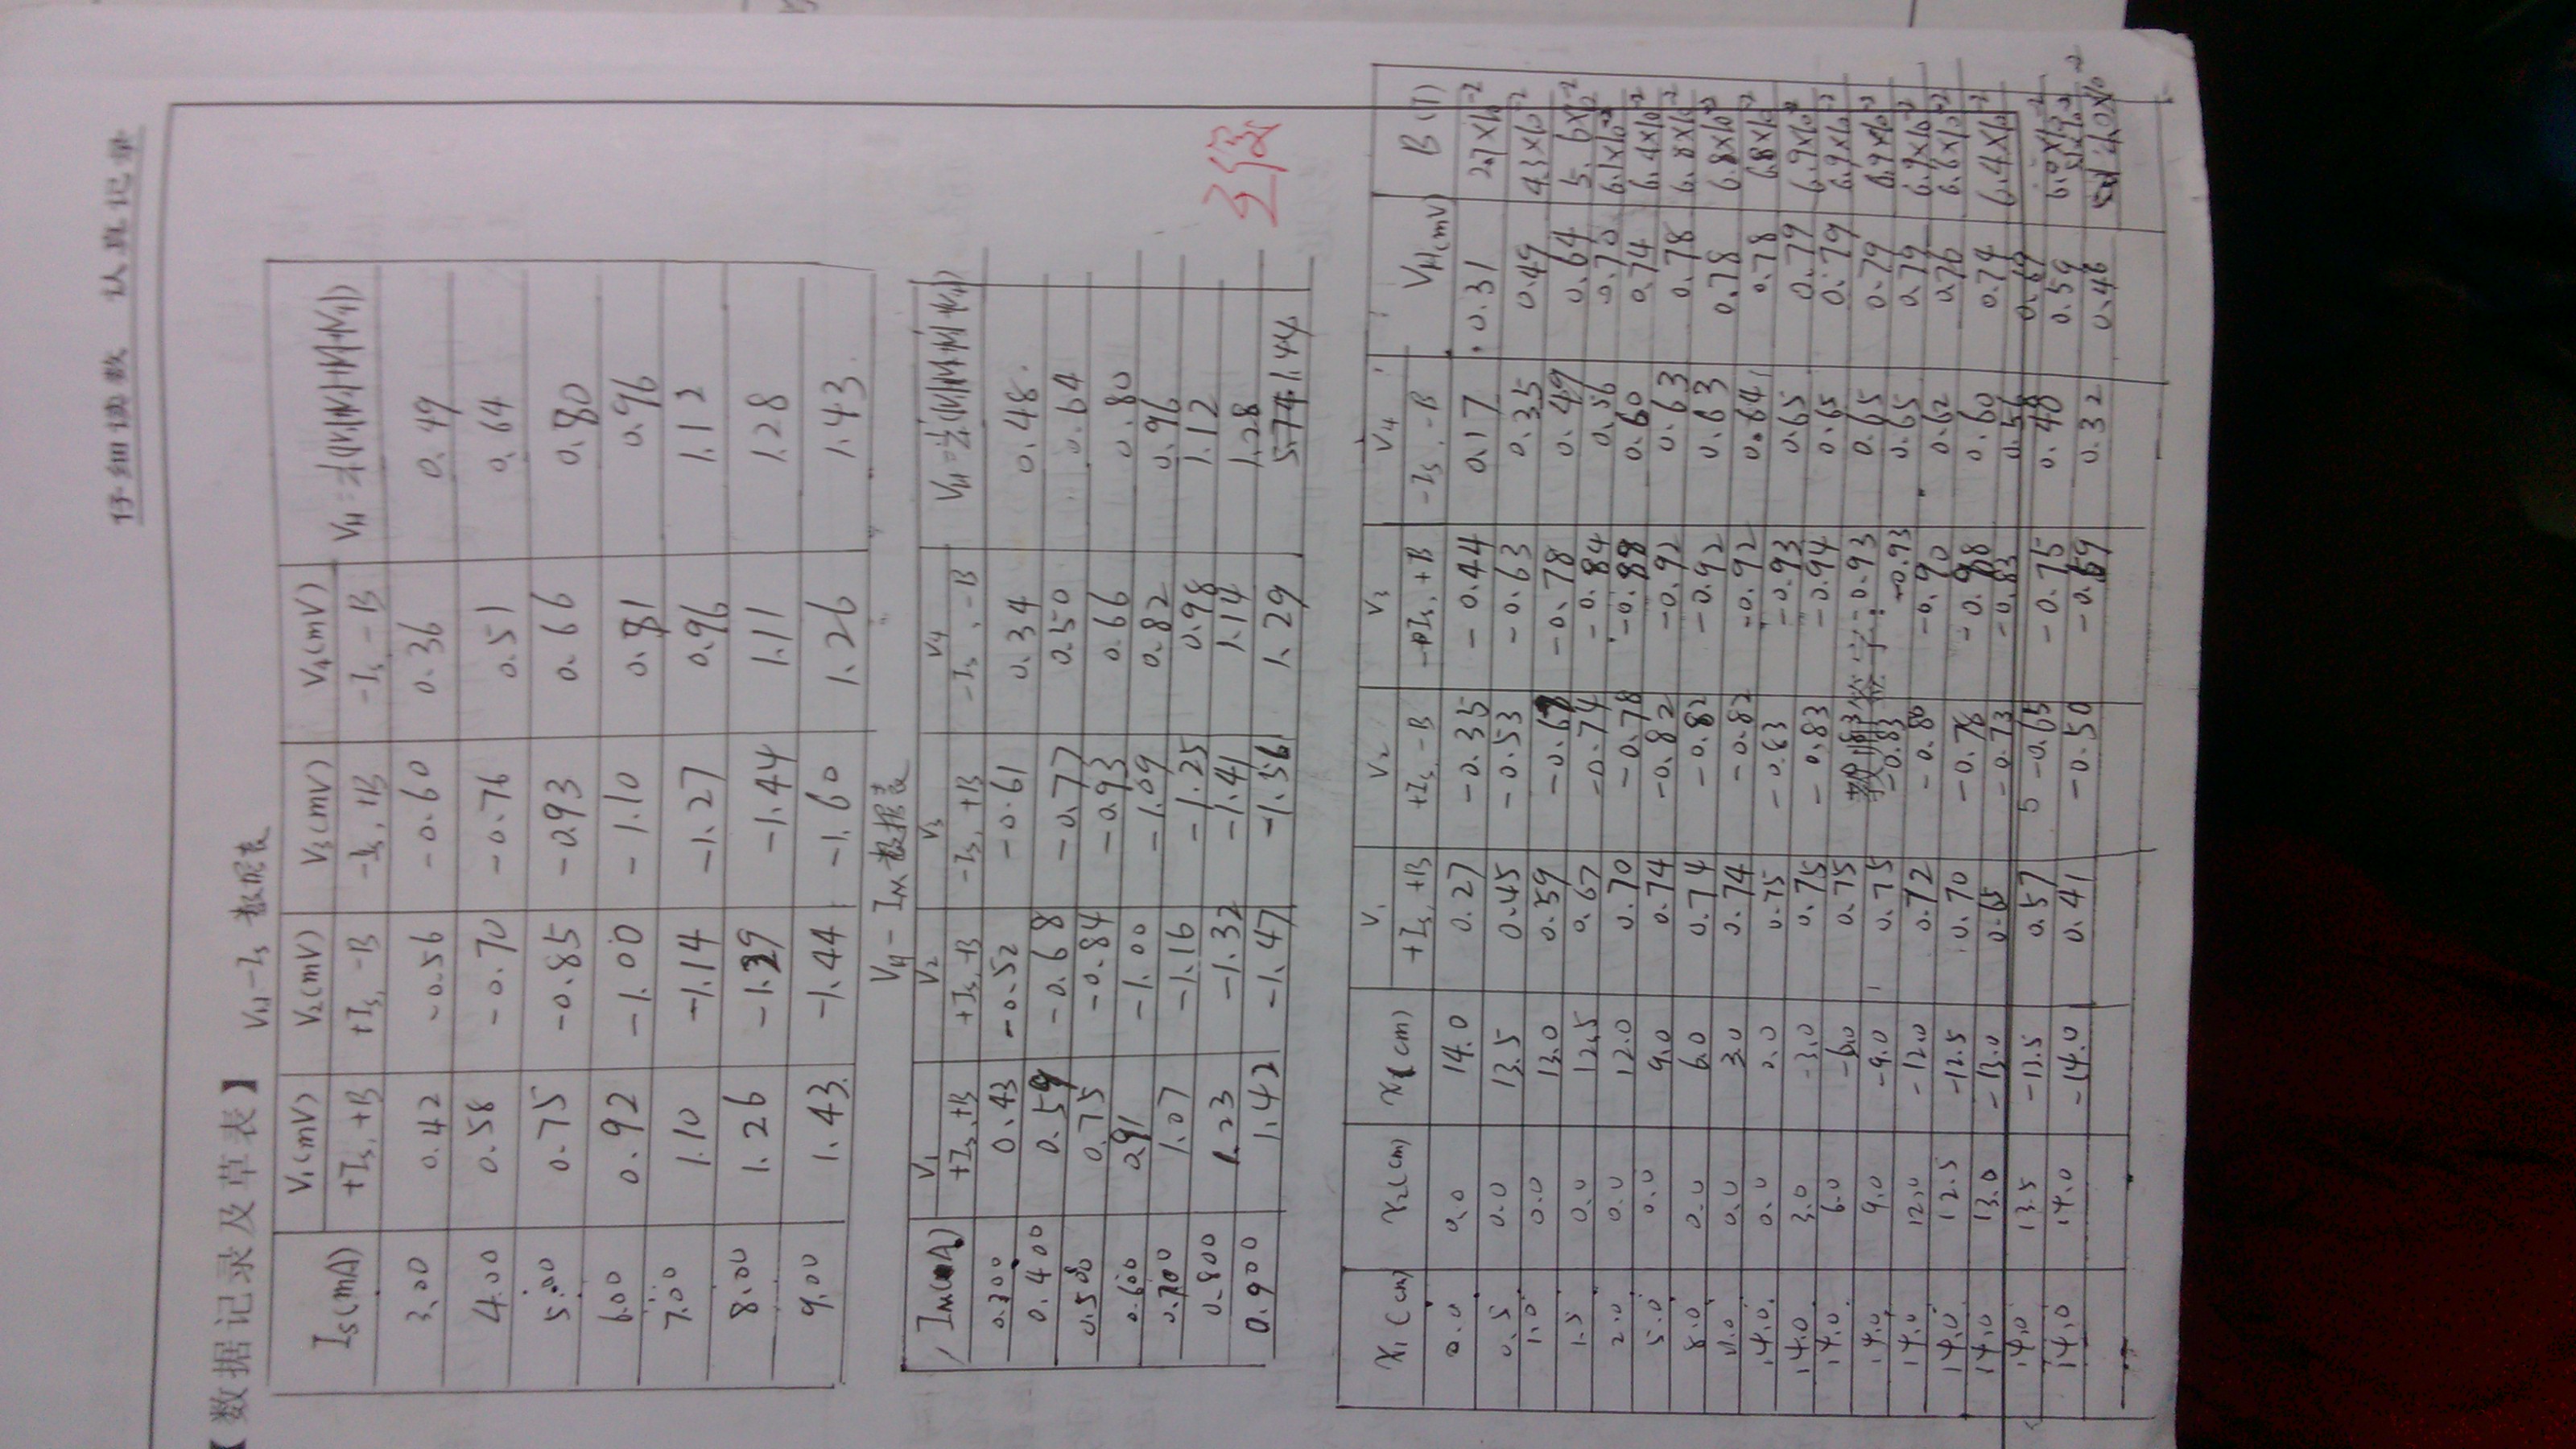 仔细读数 认真记录
【数据记录及草表】 VH-Is 数据表
Is(mA) V1(mV) V2(mV) V3(mV) V4(mV) VH=¼(|V1|+|V2|+|V3|+|V4|)
+Is,+B +Is,-B -Is,+B -Is,-B
3.00 0.42 -0.56 -0.60 0.36 0.49
4.00 0.58 -0.70 -0.76 0.51 0.64
5.00 0.75 -0.85 -0.93 0.66 0.80
6.00 0.92 -1.00 -1.10 0.81 0.96
7.00 1.10 -1.14 -1.27 0.96 1.12
8.00 1.26 -1.29 -1.44 1.11 1.28
9.00 1.43 -1.44 -1.60 1.26 1.43
VH-IM 数据表
IM(A) V1 V2 V3 V4 VH=¼(|V1|+|V2|+|V3|+|V4|)
+Is,+B +Is,-B -Is,+B -Is,-B
0.300 0.43 -0.52 -0.61 0.34 0.48
0.400 0.59 -0.68 -0.77 0.50 0.64
0.500 0.75 -0.84 -0.93 0.66 0.80
0.600 0.91 -1.00 -1.09 0.82 0.96
0.700 1.07 -1.16 -1.25 0.98 1.12
0.800 1.23 -1.32 -1.41 1.14 1.28
0.900 1.42 -1.47 -1.56 1.29 5.74 1.44
X1(cm) X2(cm) X(cm) V1 V2 V3 V4 VH(mV) B(T)
+Is,+B +Is,-B -Is,+B -Is,-B
0.0 0.0 14.0 0.27 -0.35 -0.44 0.17 0.31 2.7×10⁻²
0.5 0.0 13.5 0.45 -0.53 -0.63 0.35 0.49 4.3×10⁻²
1.0 0.0 13.0 0.59 -0.68 -0.78 0.49 0.64 5.6×10⁻²
1.5 0.0 12.5 0.67 -0.74 -0.84 0.56 0.70 6.1×10⁻²
2.0 0.0 12.0 0.70 -0.78 -0.88 0.60 0.74 6.4×10⁻²
5.0 0.0 9.0 0.74 -0.82 -0.92 0.63 0.78 6.8×10⁻²
8.0 0.0 6.0 0.74 -0.82 -0.92 0.63 0.78 6.8×10⁻²
11.0 0.0 3.0 0.74 -0.82 -0.92 0.64 0.78 6.8×10⁻²
14.0 0.0 0.0 0.75 -0.83 -0.93 0.65 0.79 6.9×10⁻²
14.0 3.0 -3.0 0.75 -0.83 -0.94 0.65 0.79 6.9×10⁻²
14.0 6.0 -6.0 0.75 -0.93 0.65 0.79 6.9×10⁻²
教师签字:
14.0 9.0 -9.0 0.75 -0.83 -0.93 0.65 0.79 6.9×10⁻²
14.0 12.0 -12.0 0.72 -0.80 -0.90 0.62 0.76 6.6×10⁻²
14.0 12.5 -12.5 0.70 -0.78 -0.88 0.60 0.74 6.4×10⁻²
14.0 13.0 -13.0 0.65 -0.73 -0.83 0.56 0.69 6.0×10⁻²
14.0 13.5 -13.5 0.57 -0.65 -0.75 0.40 0.59 5.1×10⁻²
14.0 14.0 -14.0 0.41 -0.50 -0.59 0.32 0.46 4.0×10⁻²